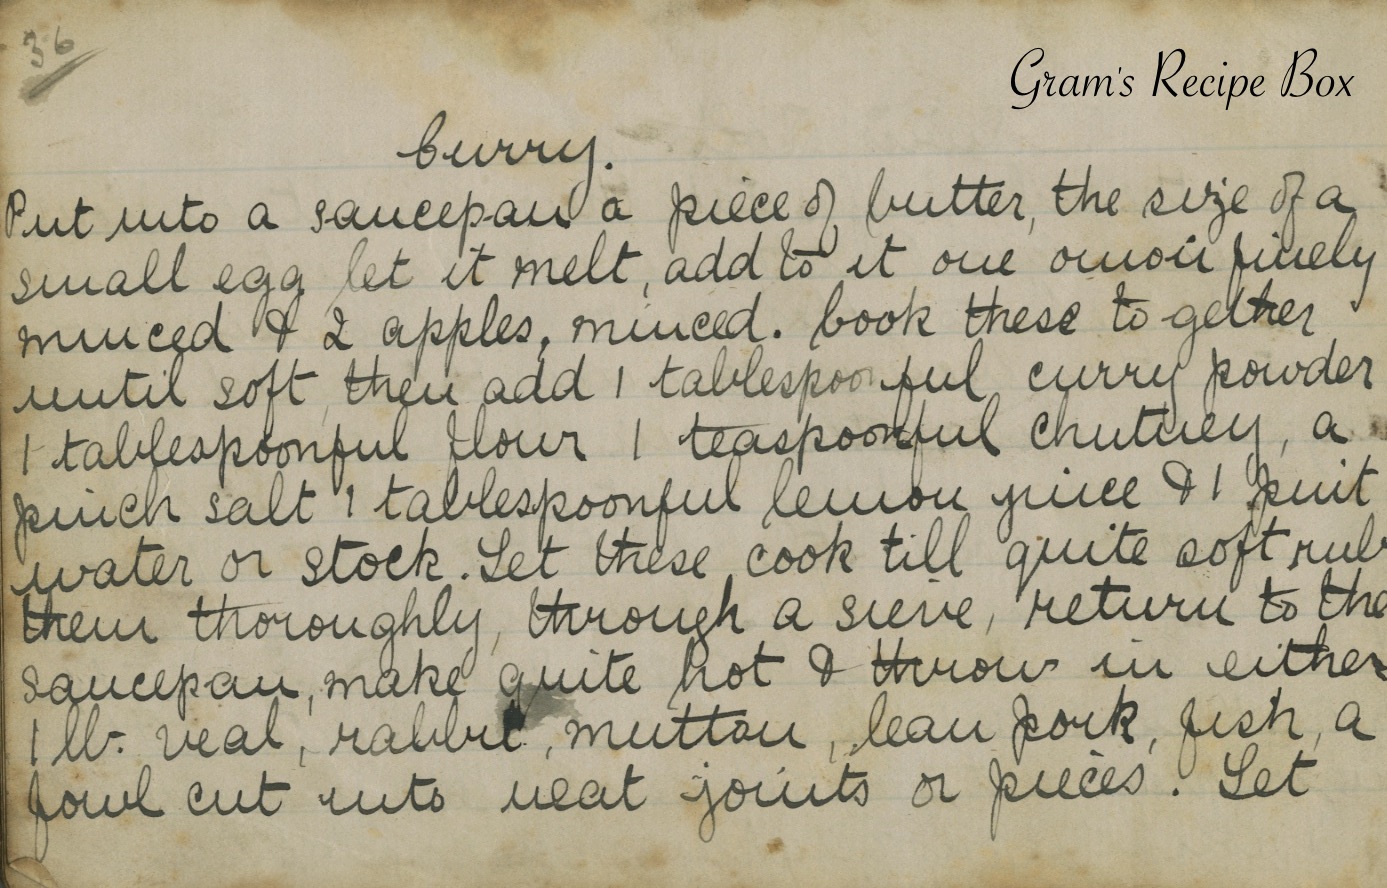 36
Gram's Recipe Box
Curry.
Put into a saucepan a piece of butter, the size of a
small egg let it melt, add to it one onion finely
minced & 2 apples, minced. Cook these to gether
until soft, then add 1 tablespoonful curry powder
1 tablespoonful flour 1 teaspoonful chutney, a
pinch salt 1 tablespoonful lemon juice & 1 pint
water or stock. Let these cook till quite soft, rub
them thoroughly, through a sieve, return to the
saucepan, make quite hot & throw in either
1 lb. veal, rabbit, mutton, lean pork, fish, a
fowl cut into neat joints or pieces. Let